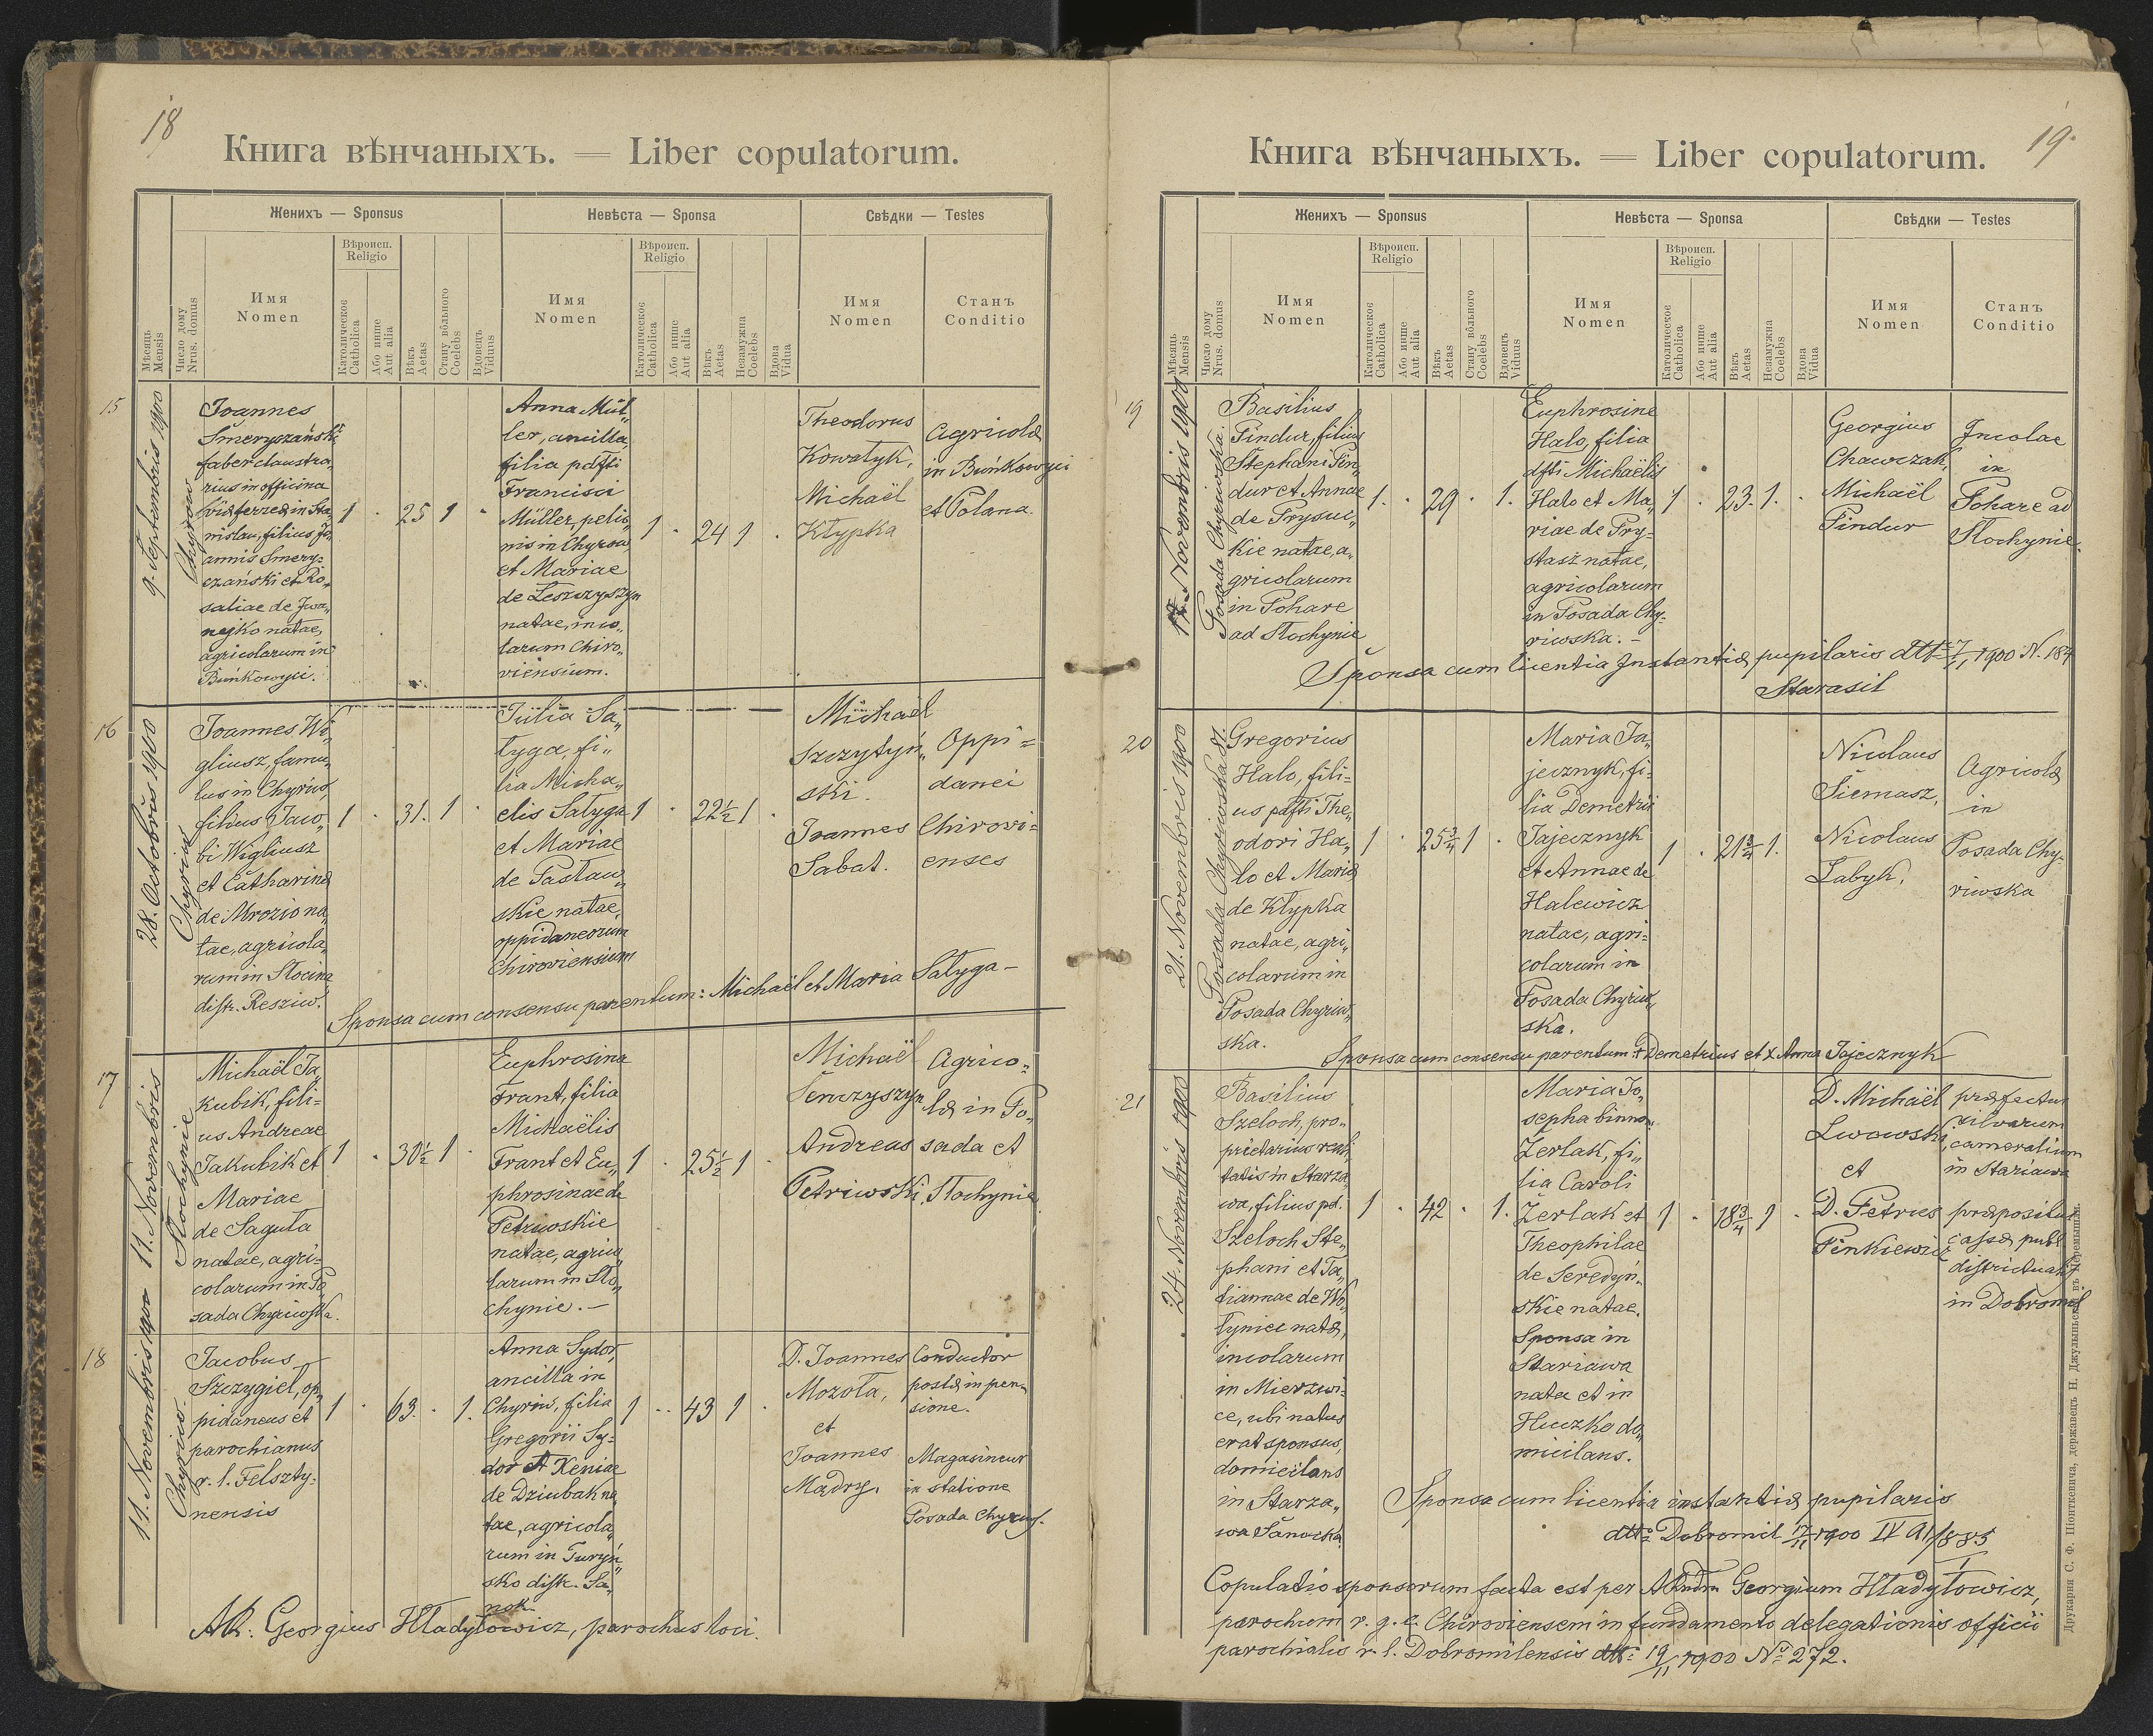 18
Книга вѣнчаныхъ. — Liber copulatorum.
Женихъ — Sponsus
Невѣста — Sponsa
Свѣдки — Testes
Мѣсяць
Mensis
Число дому
Nrus. domus
Имя
Nomen
Вѣроисп.
Religio
Католическое
Catholica
Або инше
Aut alia
Вѣкъ
Aetas
Стану вôльного
Coelebs
Вдовець
Viduus
Имя
Nomen
Вѣроисп.
Religio
Католическое
Catholica
Або инше
Aut alia
Вѣкъ
Aetas
Незамужна
Coelebs
Вдова
Vidua
Имя
Nomen
Станъ
Conditio
15
9. Septembris 1900
Chyrów
Joannes
Smeryczański
faber claustra„
rius in officina
viae ferreae in Sta„
nislau, filius Jo„
annis Smery-
czański et Ro„
saliae de Iwa„
nejko natae,
agricolarum in
Buńkowyci.
1 . 25 1 .
Anna Mül„
ler, ancilla,
filia pdfti
Francisci
Müller, pelio„
nis in Chyrow
et Mariae
de Leszczyszyn
natae, inco„
larum Chiro„
viensium.
1 . 24 1 .
Theodorus
Kowalyk,
Michaël
Kłypka
Agricolae
in Buńkowyci
et Polana.
16
28. Octobris 1900
Chyriw
Joannes Wi„
gliusz, famu„
lus in Chyriw,
filius Jaco„
bi Wigliusz
et Catharinae
de Mrozio na„
tae, agricola„
rum in Słocina
distr. Resziw.
1 . 31. 1 .
Julia Sa„
łyga, fi„
lia Micha„
elis Sałyga
et Mariae
de Pastaw„
skie natae,
oppidaneorum
Chiroviensium
1 . 22½ 1 .
Michaël
Szczytyń„
ski.
Joannes
Sabat.
Oppi=
danei
Chirovi=
enses
Sponsa cum consensu parentum: Michaël et Maria Sałyga —
17
11. Novembris 1900
Słochynie
Michaël Ja„
kubik, fili=
us Andreae
Jakubik et
Mariae
de Saguta
natae, agri=
colarum in Po„
sada Chyriwska.
1 . 30½ 1 .
Euphrosina
Frant, filia
Michaëlis
Frant et Eu„
phrosinae de
Petriwskie
natae, agrico„
larum in Sło„
chynie. —
1 . 25½ 1 .
Michaël
Senczyszyn
Andreas
Petriwski,
Agrico=
lae in Po„
sada et
Słochynie
18
11. Novembris
Chyriw.
Jacobus
Szczygieł, op„
pidaneus et
parochianus
r. l. Felszty=
nensis
1 . 63. . 1.
Anna Sydor,
ancilla in
Chyriw, filia
Gregorii Sy=
dor et Xeniae
de Dziubak na„
tae, agricola„
rum in Turyń„
sko distr. Sa„
nok
1 . . 43 1 .
D. Joannes
Mozoła,
et
Joannes
Mądry.
Conductor
postae in pen„
sione.
Magasineur
in statione
Posada Chyriws.
AR. Georgius Hładyłowicz, parochus loci.
19
Книга вѣнчаныхъ. — Liber copulatorum.
Женихъ — Sponsus
Невѣста — Sponsa
Свѣдки — Testes
Мѣсяць
Mensis
Число дому
Nrus. domus
Имя
Nomen
Вѣроисп.
Religio
Католическое
Catholica
Або инше
Aut alia
Вѣкъ
Aetas
Стану вôльного
Coelebs
Вдовець
Viduus
Имя
Nomen
Вѣроисп.
Religio
Католическое
Catholica
Або инше
Aut alia
Вѣкъ
Aetas
Незамужна
Coelebs
Вдова
Vidua
Имя
Nomen
Станъ
Conditio
19
Novembris 1900
Posada Chyriwska.
Basilius
Pindur, filius
Stephani Pin„
dur et Annae
de Prysuc„
kie natae, a„
gricolarum
in Pohare
ad Słochynie
1. . 29 . 1.
Euphrosine
Halo, filia
dfti Michaëlis
Halo et Ma„
riae de Pry=
stasz natae,
agricolarum
in Posada Chy-
riwska. —
1 . 23. 1. .
Georgius
Chawczak,
Michaël
Pindur
Incolae
in
Pohare ad
Słochynie.
Sponsa cum licentia Instantiae pupilaris dtto 7/11 1900 N. 184
Starasil
20
21. Novembris 1900
Posada Chyriwska 87.
Gregorius
Halo, fili=
us pdfti The„
odori Ha„
lo et Mariae
de Kłypka
natae, agri„
colarum in
Posada Chyriw„
ska.
1 . 25¾ 1 .
Maria Ja„
jecznyk, fi-
lia Demetrii
Jajecznyk
et Annae de
Halewicz
natae, agri=
colarum in
Posada Chyriw„
ska.
1 . 21¾ 1.
Nicolaus
Siemasz,
Nicolaus
Łabyk,
Agricolae
in
Posada Chy-
riwska
Sponsa cum consensu parentum + Demetrius et + Anna Jajecznyk
21
24. Novembris 1900
Basilius
Szeloch, pro„
prietarius reali„
tatis in Starza„
wa, filius pd.
Szeloch Ste„
phani et Ta„
tiannae de Wo„
łyniec natae,
incolarum
in Mierzwi=
ce, ubi natus
erat sponsus,
domicilans
in Starza„
wa Sanocka
1 . 42 . 1.
Maria Jo„
sepha binnom.
Zerlak, fi„
lia Caroli
Żerlak et
Theophilae
de Seredyń„
skie natae.
Sponsa in
Stariawa
nata et in
Huczko do„
micilans.
1 . 18¾ 1 .
D. Michaël
Lwowski,
et
D. Petrus
Pinkiewicz
praefectus
silvarum
cameralium
in Stariawa
praepositus
cassae publ.
districtualis
in Dobromil
Sponsa cum licentia instantiae pupilaris
dtto Dobromil 17/11 1900 IV
Copulatio sponsorum facta est per ARndm Georgium Hładyłowicz,
parochum r. g. c. Chiroviensem in fundamento delegationis officii
parochialis r. l. Dobromilensis dtto 19/11 1900 No 272.
Друкарня С. Ф. Піонткевича, державець Н. Джулыньскій въ Перемышли.